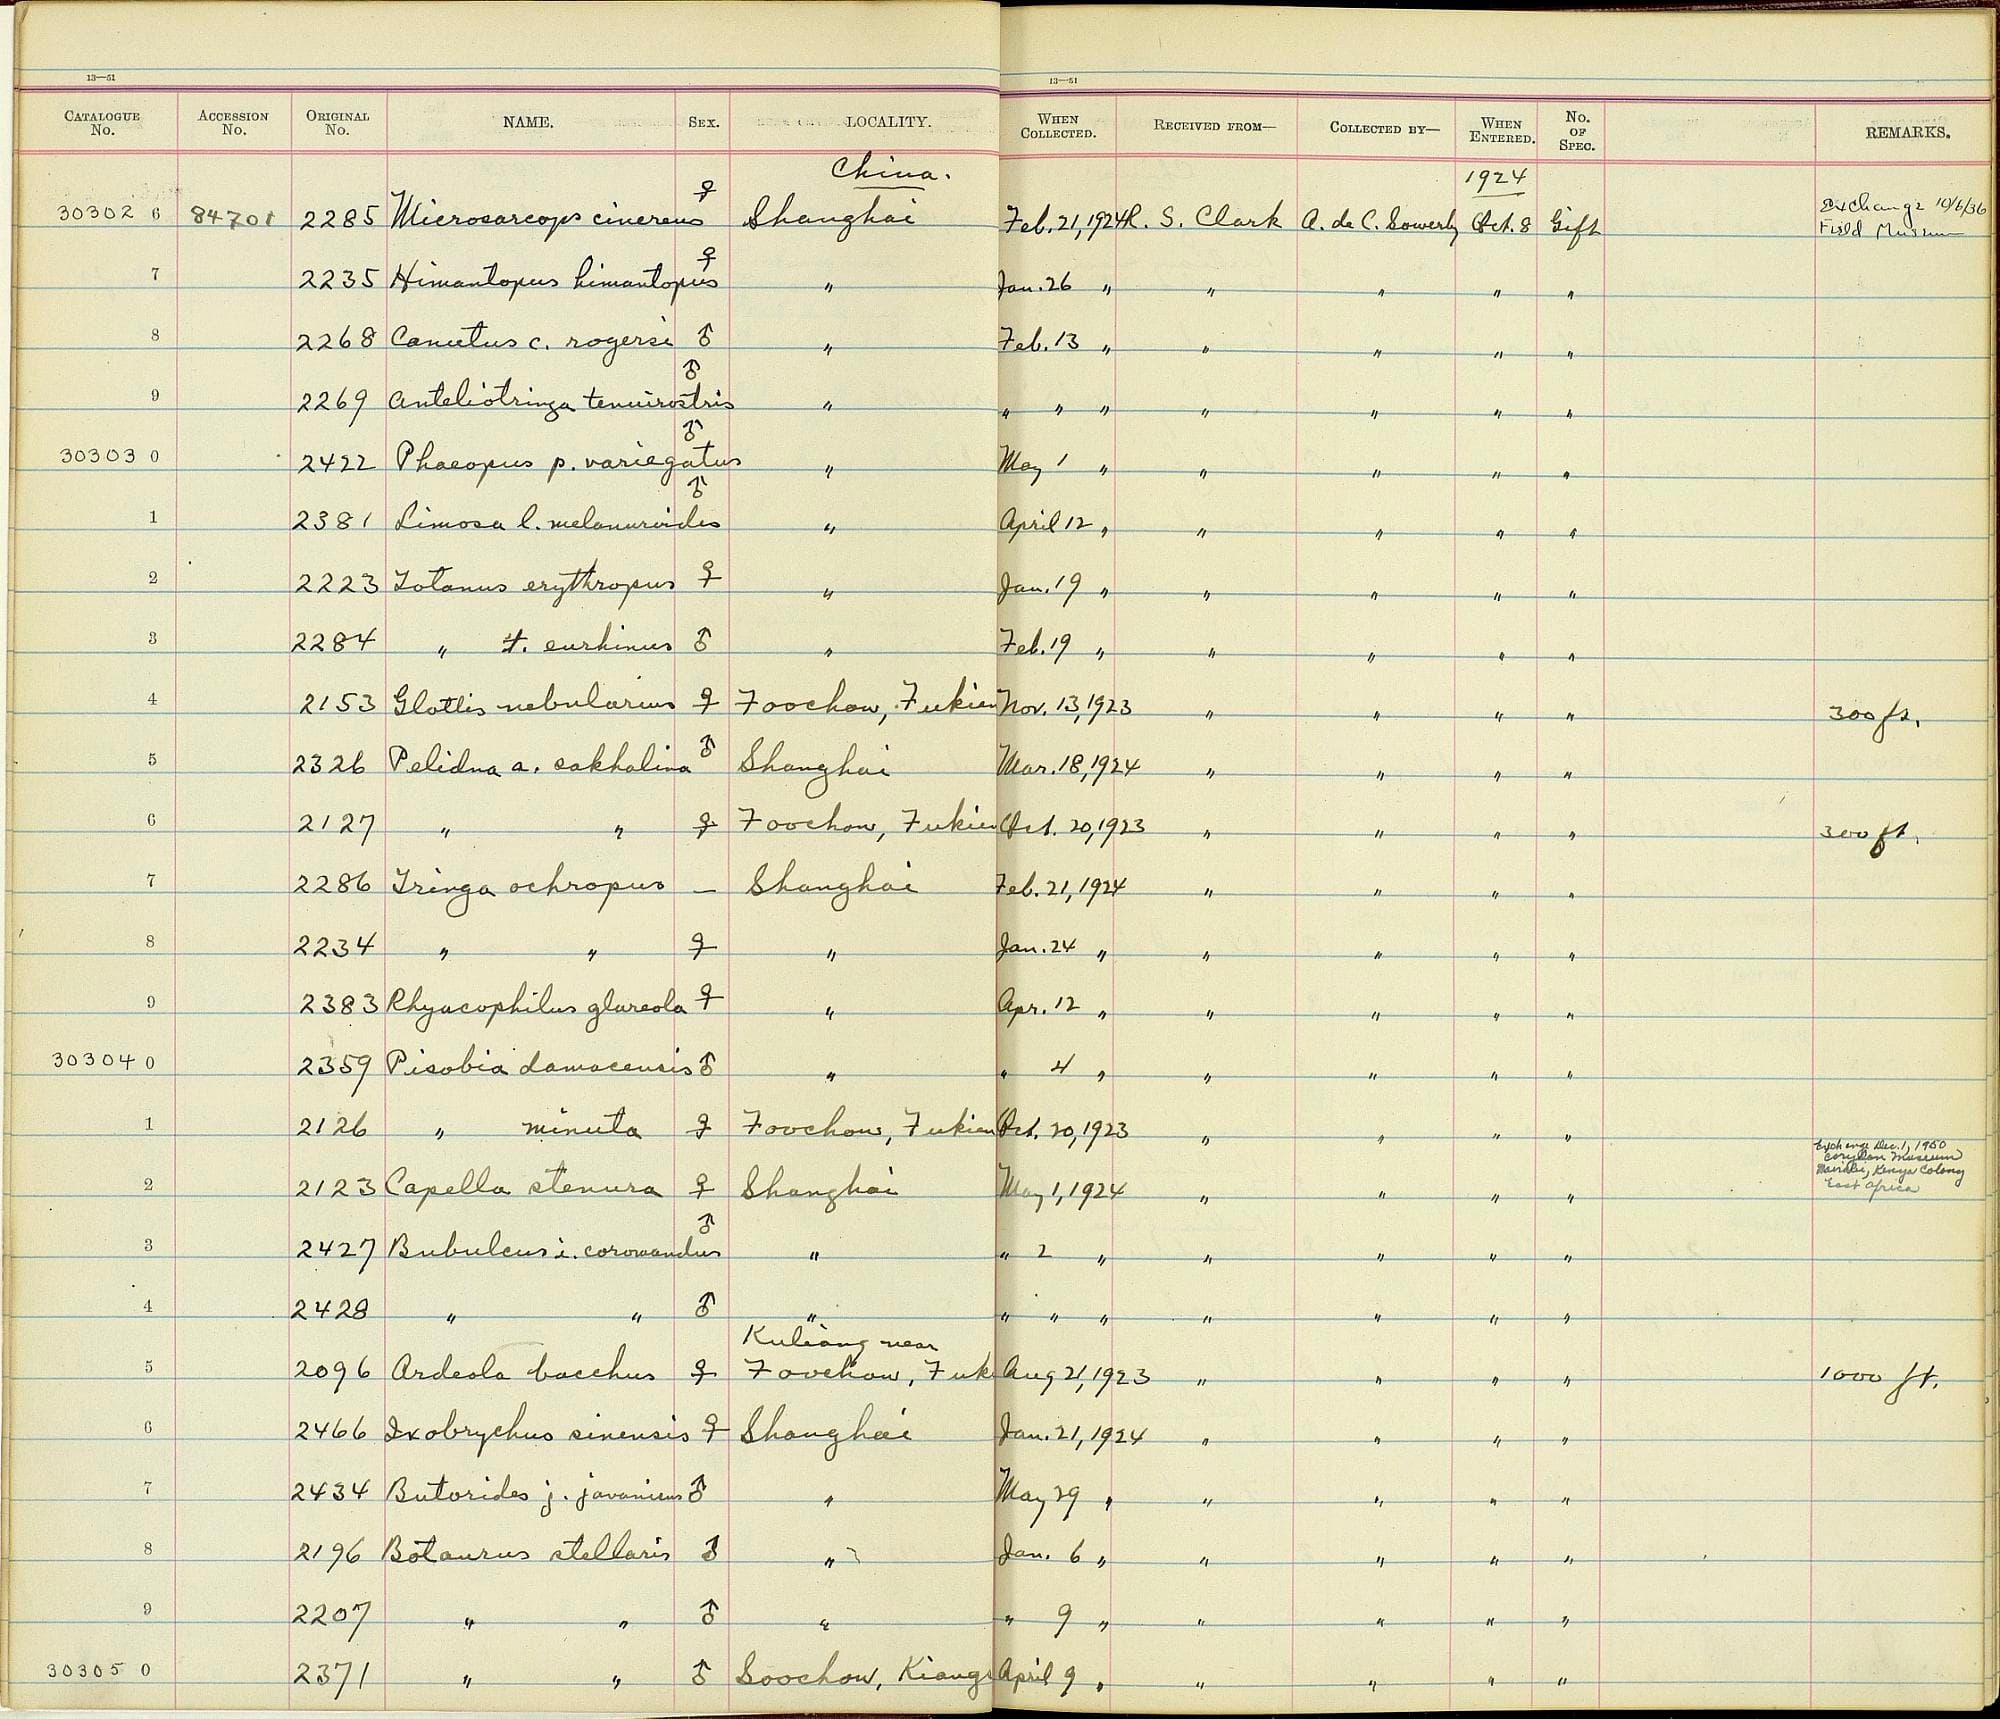 13—51 13—51
CATALOGUE No. ACCESSION No. ORIGINAL No. NAME. SEX. LOCALITY. WHEN COLLECTED. RECEIVED FROM— COLLECTED BY— WHEN ENTERED. No. OF SPEC. REMARKS.
China. 1924
30302 6 84701 2285 Microsarcops cinereus ♀ Shanghai Feb. 21, 1924 R. S. Clark A. de C. Sowerby Oct. 8 Gift Exchange 10/6/36 Field Museum
7 2235 Himantopus himantopus ♀ " Jan. 26 " " " " "
8 2268 Canutus c. rogersi ♂ " Feb. 13 " " " " "
9 2269 Anteliotringa tenuirostris ♂ " " " " " " " "
30303 0 2422 Phaeopus p. variegatus ♂ " May 1 " " " " "
1 2381 Limosa l. melanuroides ♂ " April 12 " " " " "
2 2223 Totanus erythropus ♀ " Jan. 19 " " " " "
3 2284 " t. eurhinus ♂ " Feb. 19 " " " " "
4 2153 Glottis nebularius ♀ Foochow, Fukien Nov. 13, 1923 " " " " 300 ft.
5 2326 Pelidna a. sakhalina ♂ Shanghai Mar. 18, 1924 " " " "
6 2127 " " ♀ Foochow, Fukien Oct. 20, 1923 " " " " 300 ft.
7 2286 Tringa ochropus — Shanghai Feb. 21, 1924 " " " "
8 2234 " " ♀ " Jan. 24 " " " " "
9 2383 Rhyacophilus glareola ♀ " Apr. 12 " " " " "
30304 0 2359 Pisobia damacensis ♂ " " 4 " " " " "
1 2126 " minuta ♀ Foochow, Fukien Oct. 20, 1923 " " " "
2 2123 Capella stenura ♀ Shanghai May 1, 1924 " " " " Exchange Dec. 1, 1950 Coryndon Museum Nairobi, Kenya Colony East Africa
3 2427 Bubulcus i. coromandus ♂ " " 2 " " " " "
4 2428 " " ♂ " " " " " " " "
5 2096 Ardeola bacchus ♀ Kuliang near Foochow, Fuk Aug 21, 1923 " " " " 1000 ft.
6 2466 Ixobrychus sinensis ♀ Shanghai Jan. 21, 1924 " " " "
7 2434 Butorides j. javanicus ♂ " May 29 " " " " "
8 2196 Botaurus stellaris ♂ " Jan. 6 " " " " "
9 2207 " " ♂ " " 9 " " " " "
30305 0 2371 " " ♂ Soochow, Kiangs April 9 " " " " "